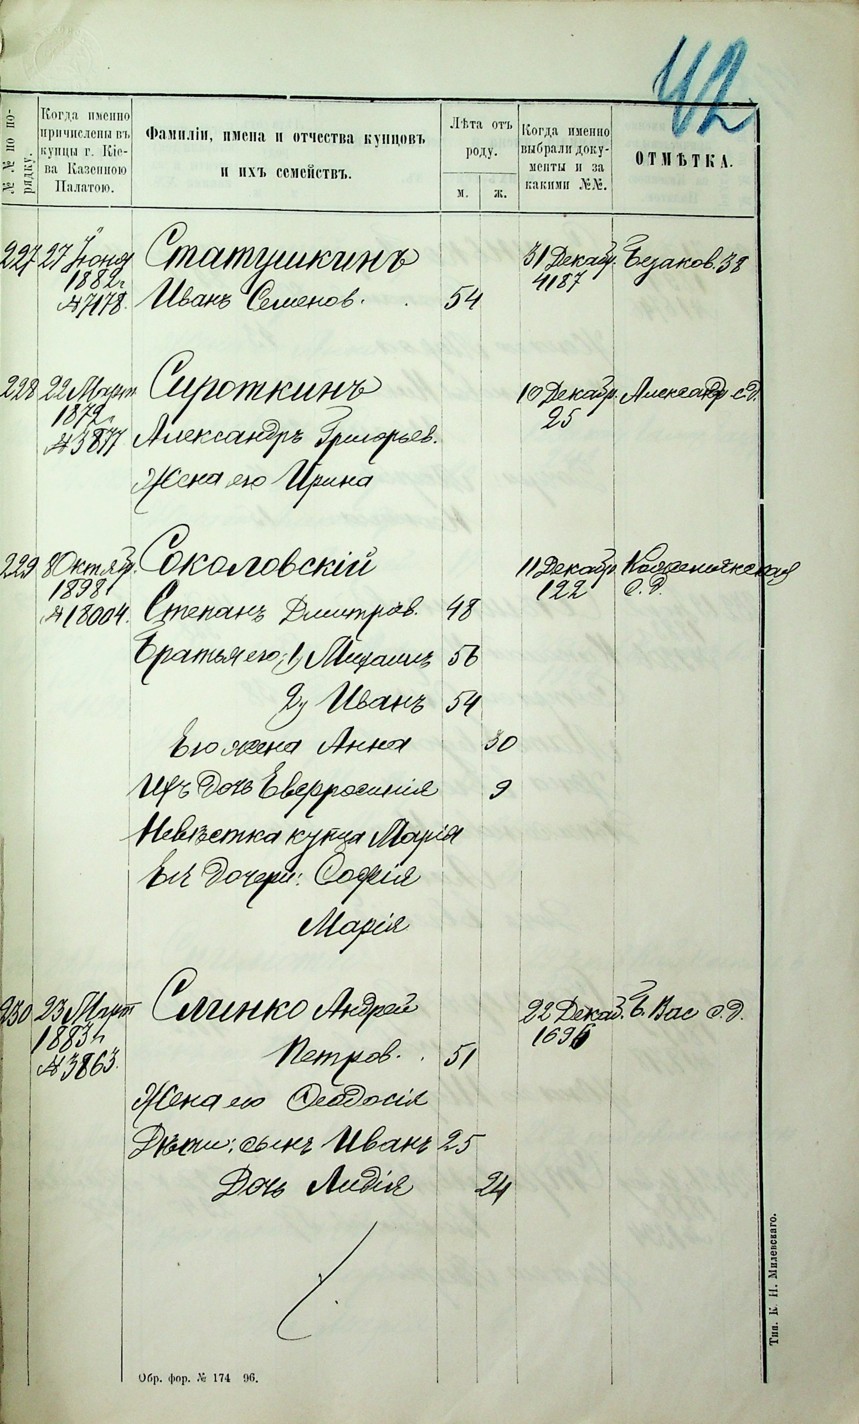 42
№№ по по-
рядку.
Когда именно
причислены въ
купцы г. Кіе-
ва Казенною
Палатою.
Фамиліи, имена и отчества купцовъ
и ихъ семействъ.
Лѣта отъ
роду.
м.
ж.
Когда именно
выбрали доку-
менты и за
какими №№.
ОТМѢТКА.
227 27 Іюня Статушкинъ 31 Декабр. Безаков. 38
1882 г. 4187
№ 7178. Иванъ Семенов. 54
228 22 Март Сироткинъ 10 Декабр. Александр с.д.
1872 г. 25
№ 3877 Александръ Григорьев.
Жена его Ирина
229 8 Октябр. Соколовскій 11 Декабр
1898 122 с.д.
№ 18004. Степанъ Дмитров. 48
Братья его, 1) Михаилъ 56
2) Иванъ 54
Его жена Анна 30
Ихъ дочь Евфросинія 9
Невѣстка купца Марія
Ея дочери: Софія
Марія
230 23 Март Слинко Андрей 22 Декаб. Б. Вас с.д.
1883 г. 1695
№ 3863. Петров. 51
Жена его Ѳеодосія
Дѣти: сынъ Иванъ 25
Дочь Лидія 24
Обр. фор. № 174 96.
Тип. К. Н. Милевскаго.